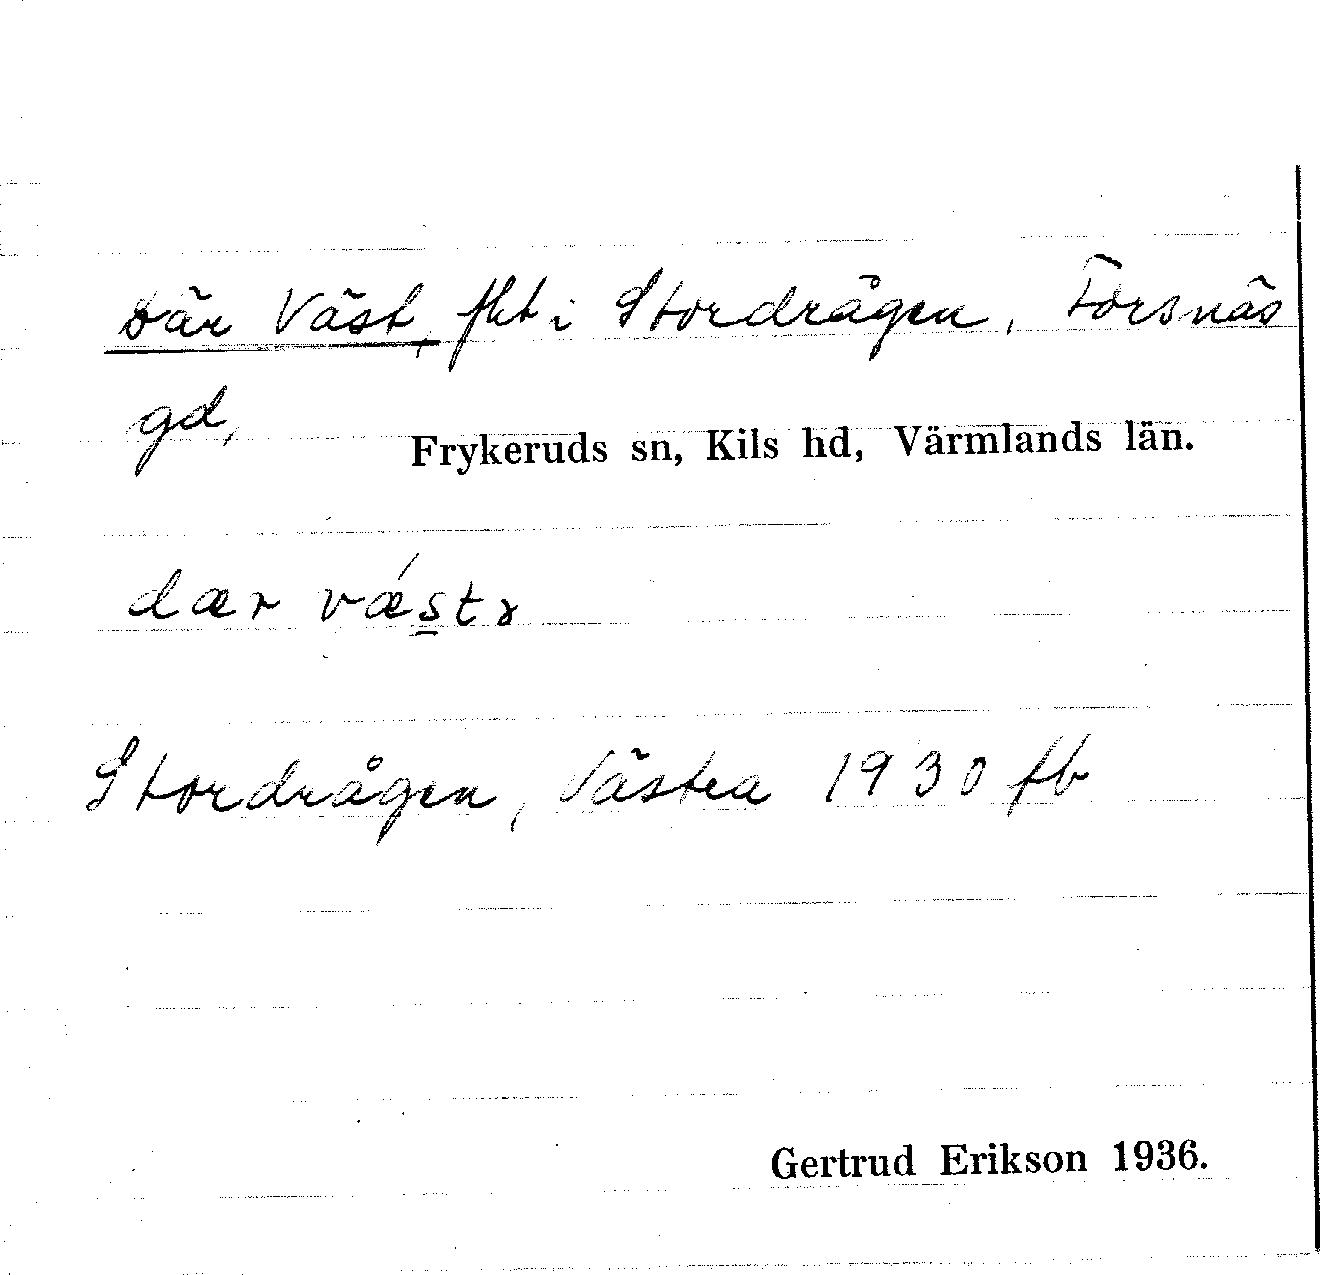 Där Väst, fht i Stordrågen, Forsnäs
gd,
Frykeruds sn, Kils hd, Värmlands län.
dær vǽs̲tɤ
Stordrågen, Västra 1930 fb
Gertrud Erikson 1936.